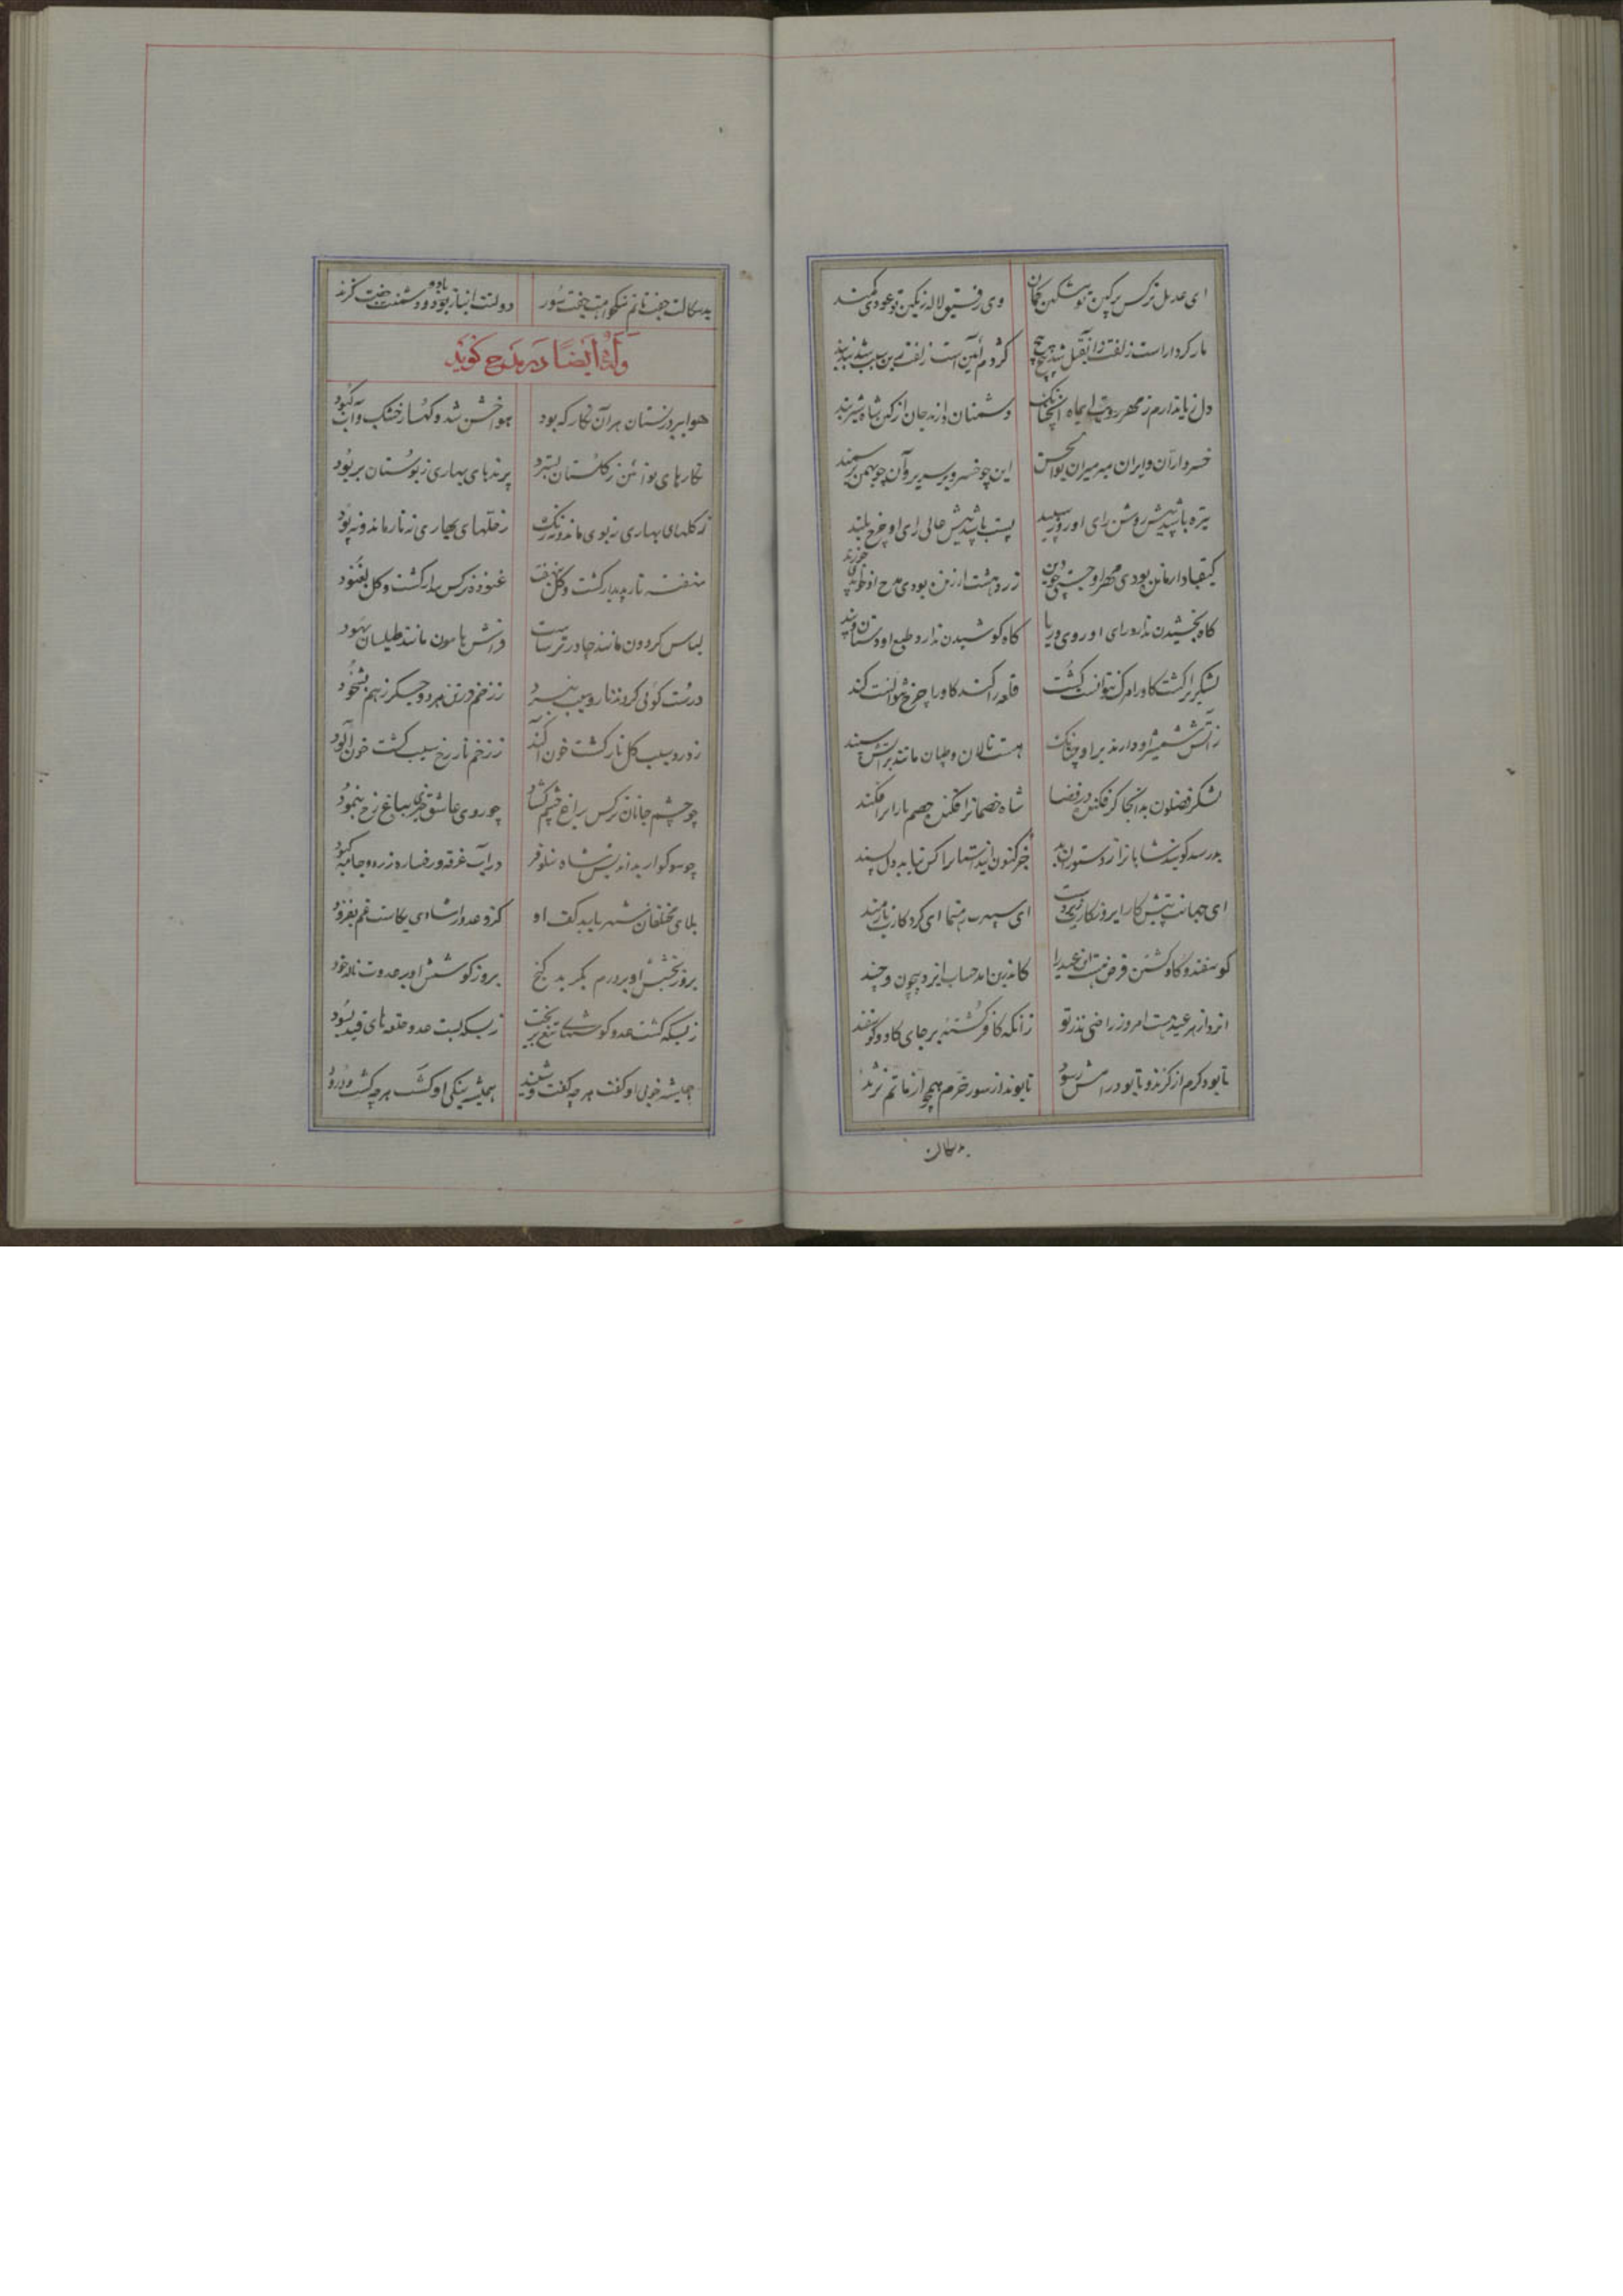 ای عدیل نرگس پرکین تو مشکین کمان وی رفیق لاله رنگین تو عودی کمند
مار کردار است زلفت زان بقبل شد پیچ پیچ کژدم آئین است زلفت زین سبب شد بند بند
دل نیازارم ز مهر رویت ای ماه آنچنانک دشمنان را زند جان از کین شاه
خسرو اران و ایران میر میران بوالحسن این چو خسرو بر سریر و آن چو بهمن بر سمند
تیره باشد پیش روشن رای او روز سپید پست باشد پیش عالی رای او چرخ بلند
کیقباد ار بودی مهر او جستی چو دین زردهشت ار زنده بودی مدح او خواندی چو زند
گاه بخشیدن ندارد رای او روی و ریا گاه کوشیدن ندارد طبع او دستان و بند
لشکری را کشت کاو را مرگ نتوانست کشت قلعه را کند کاو را چرخ نتوانست کند
ز آتش شمشیر او دارند بر او چنانک هست نالان و طپان مانند بر آتش سپند
لشکر فضلون بدانجا گر فکندی در قضا شاه خصمانرا فکند خصم یارانرا فکند
بد رسد گویند شاهانرا ز دستوران بد جز کنون این داستانرا کس نیاید دل پسند
ای جهانت پیشکار ایرد نگار ای سپهرت رهنما ای کردگارت یارمند
گوسفند و گاو کشتن فرض هست این عید را کاندرین آمد حساب ایزد بچون و چند
ایزد از هر عید هست امروز راضی تر ز تو زانکه کافر کشته‌ای بر جای گاو و گوسفند
تا بود کرم از گزند و تا بود رامش ز سود تا بوند از سور خرم همچو از ماتم نژند
بدسگالت
بدسگالت جفت ماتم نیکخواهت جفت سور دولتت انباز بادو سود و دشمنت جفت گزند
وله ایضا در مدح گوید
هوا ببرد ز بستان هر آن نگار که بود هوا خشن شد و کهسار خشک و آب کبود
نگارهای نو آئین ز گلستان بسترد پرندهای بهاری ز بوستان بربود
ز گلهای بهاری نه بوی ماند و نه رنگ ز حله‌های بهاری نه تار ماند و نه پود
بنفشه ناپدیدار گشت و گل بنهفت غنوده نرگس بیدار گشت و گل بغنود
لباس گردون مانند چادر ترساست فرش هامون مانند طیلسان یهود
درست گوئی کردند نار و سیب نبرد ز زخم در تن هر دو جگر ز هم بشخود
ز درد سیب دل نار گشت خون آکند ز زخم نار رخ سیب گشت خون آلود
چو چشم جانان نرگس بباغ چشم گشاد چو روی عاشق خیری بباغ رخ بنمود
چو سوکوار بداندیش شاه نیلوفر در آب غرقه و رخساره زرد و جامه کبود
بلای مختلفان شهریار بد کف او کزو عدو را شادی بکاست غم بفزود
بروز بخشش او بر درم بگرید گنج بروز کوشش او بر عدوت نالد خود
ز بسکه کشت عدو گوشهای تیغ بریخت ز بسکه بست عدو حلقه های قید بسود
همیشه خوبی او گفت هر چه گفت و شنید همیشه نیکی او کشت هر چه کشت و درود